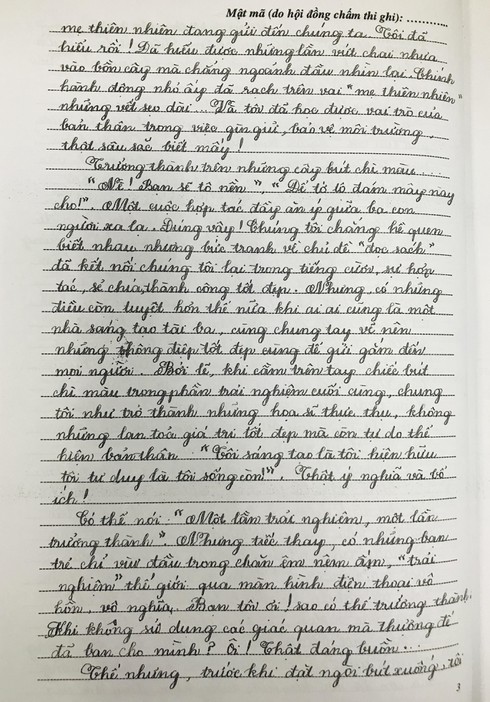 Mật mã (do hội đồng chấm thi ghi): ............
mẹ thiên nhiên đang gửi đến chúng ta. Tôi đã
hiểu rồi! Đã hiểu được những lần vứt chai nhựa
vào bồn cây mà chẳng ngoảnh đầu nhìn lại. Chính
hành động nhỏ ấy đã rạch trên vai "mẹ thiên nhiên"
những vết sẹo dài... Và tôi đã học được vai trò của
bản thân trong việc gìn giữ, bảo vệ môi trường
thật sâu sắc biết mấy!
Trưởng thành trên những cây bút chì màu....
"Nè! Bạn sẽ tô nền", "Để tớ tô đám mây này
cho!" Một cuộc hợp tác đầy ăn ý giữa ba con
người xa lạ. Đúng vậy! Chúng tôi chẳng hề quen
biết nhau nhưng bức tranh về chủ đề "đọc sách"
đã kết nối chúng tôi lại trong tiếng cười, sự hợp
tác, sẻ chia, thành công tốt đẹp. Nhưng, có những
điều còn tuyệt hơn thế nữa khi ai ai cũng là một
nhà sáng tạo tài ba, cùng chung tay vẽ nên
những thông điệp tốt đẹp cùng để gửi gắm đến
mọi người. Bởi lẽ, khi cầm trên tay chiếc bút
chì màu trong phần trải nghiệm cuối cùng, chúng
tôi như trở thành những họa sĩ thực thụ, không
những lan toả giá trị tốt đẹp mà còn tự do thể
hiện bản thân "Tôi sáng tạo là tôi hiện hữu
tôi tư duy là tôi sống còn!". Thật ý nghĩa và bổ
ích!
Có thể nói: "Một lần trải nghiệm, một lần
trưởng thành". Nhưng tiếc thay, có những bạn
trẻ chỉ vùi đầu trong chăn êm nệm ấm, "trải
nghiệm" thế giới qua màn hình điện thoại vô
hồn, vô nghĩa. Bạn tôi ơi! sao có thể trưởng thành
khi không sử dụng các giác quan mà thượng đế
đã ban cho mình? Ôi! Thật đáng buồn...
Thế nhưng, trước khi đặt ngòi bút xuống, tôi
3